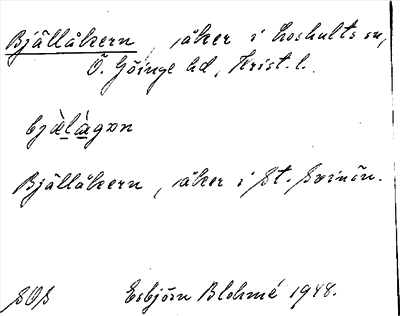 Bjällåkern, åker i Loshults sn,
Ö. Göinge hd, Krist. l.
bjälågɒn
Bjällåkern, åker i St. Svinön.
SOS Esbjörn Blohmé 1948.